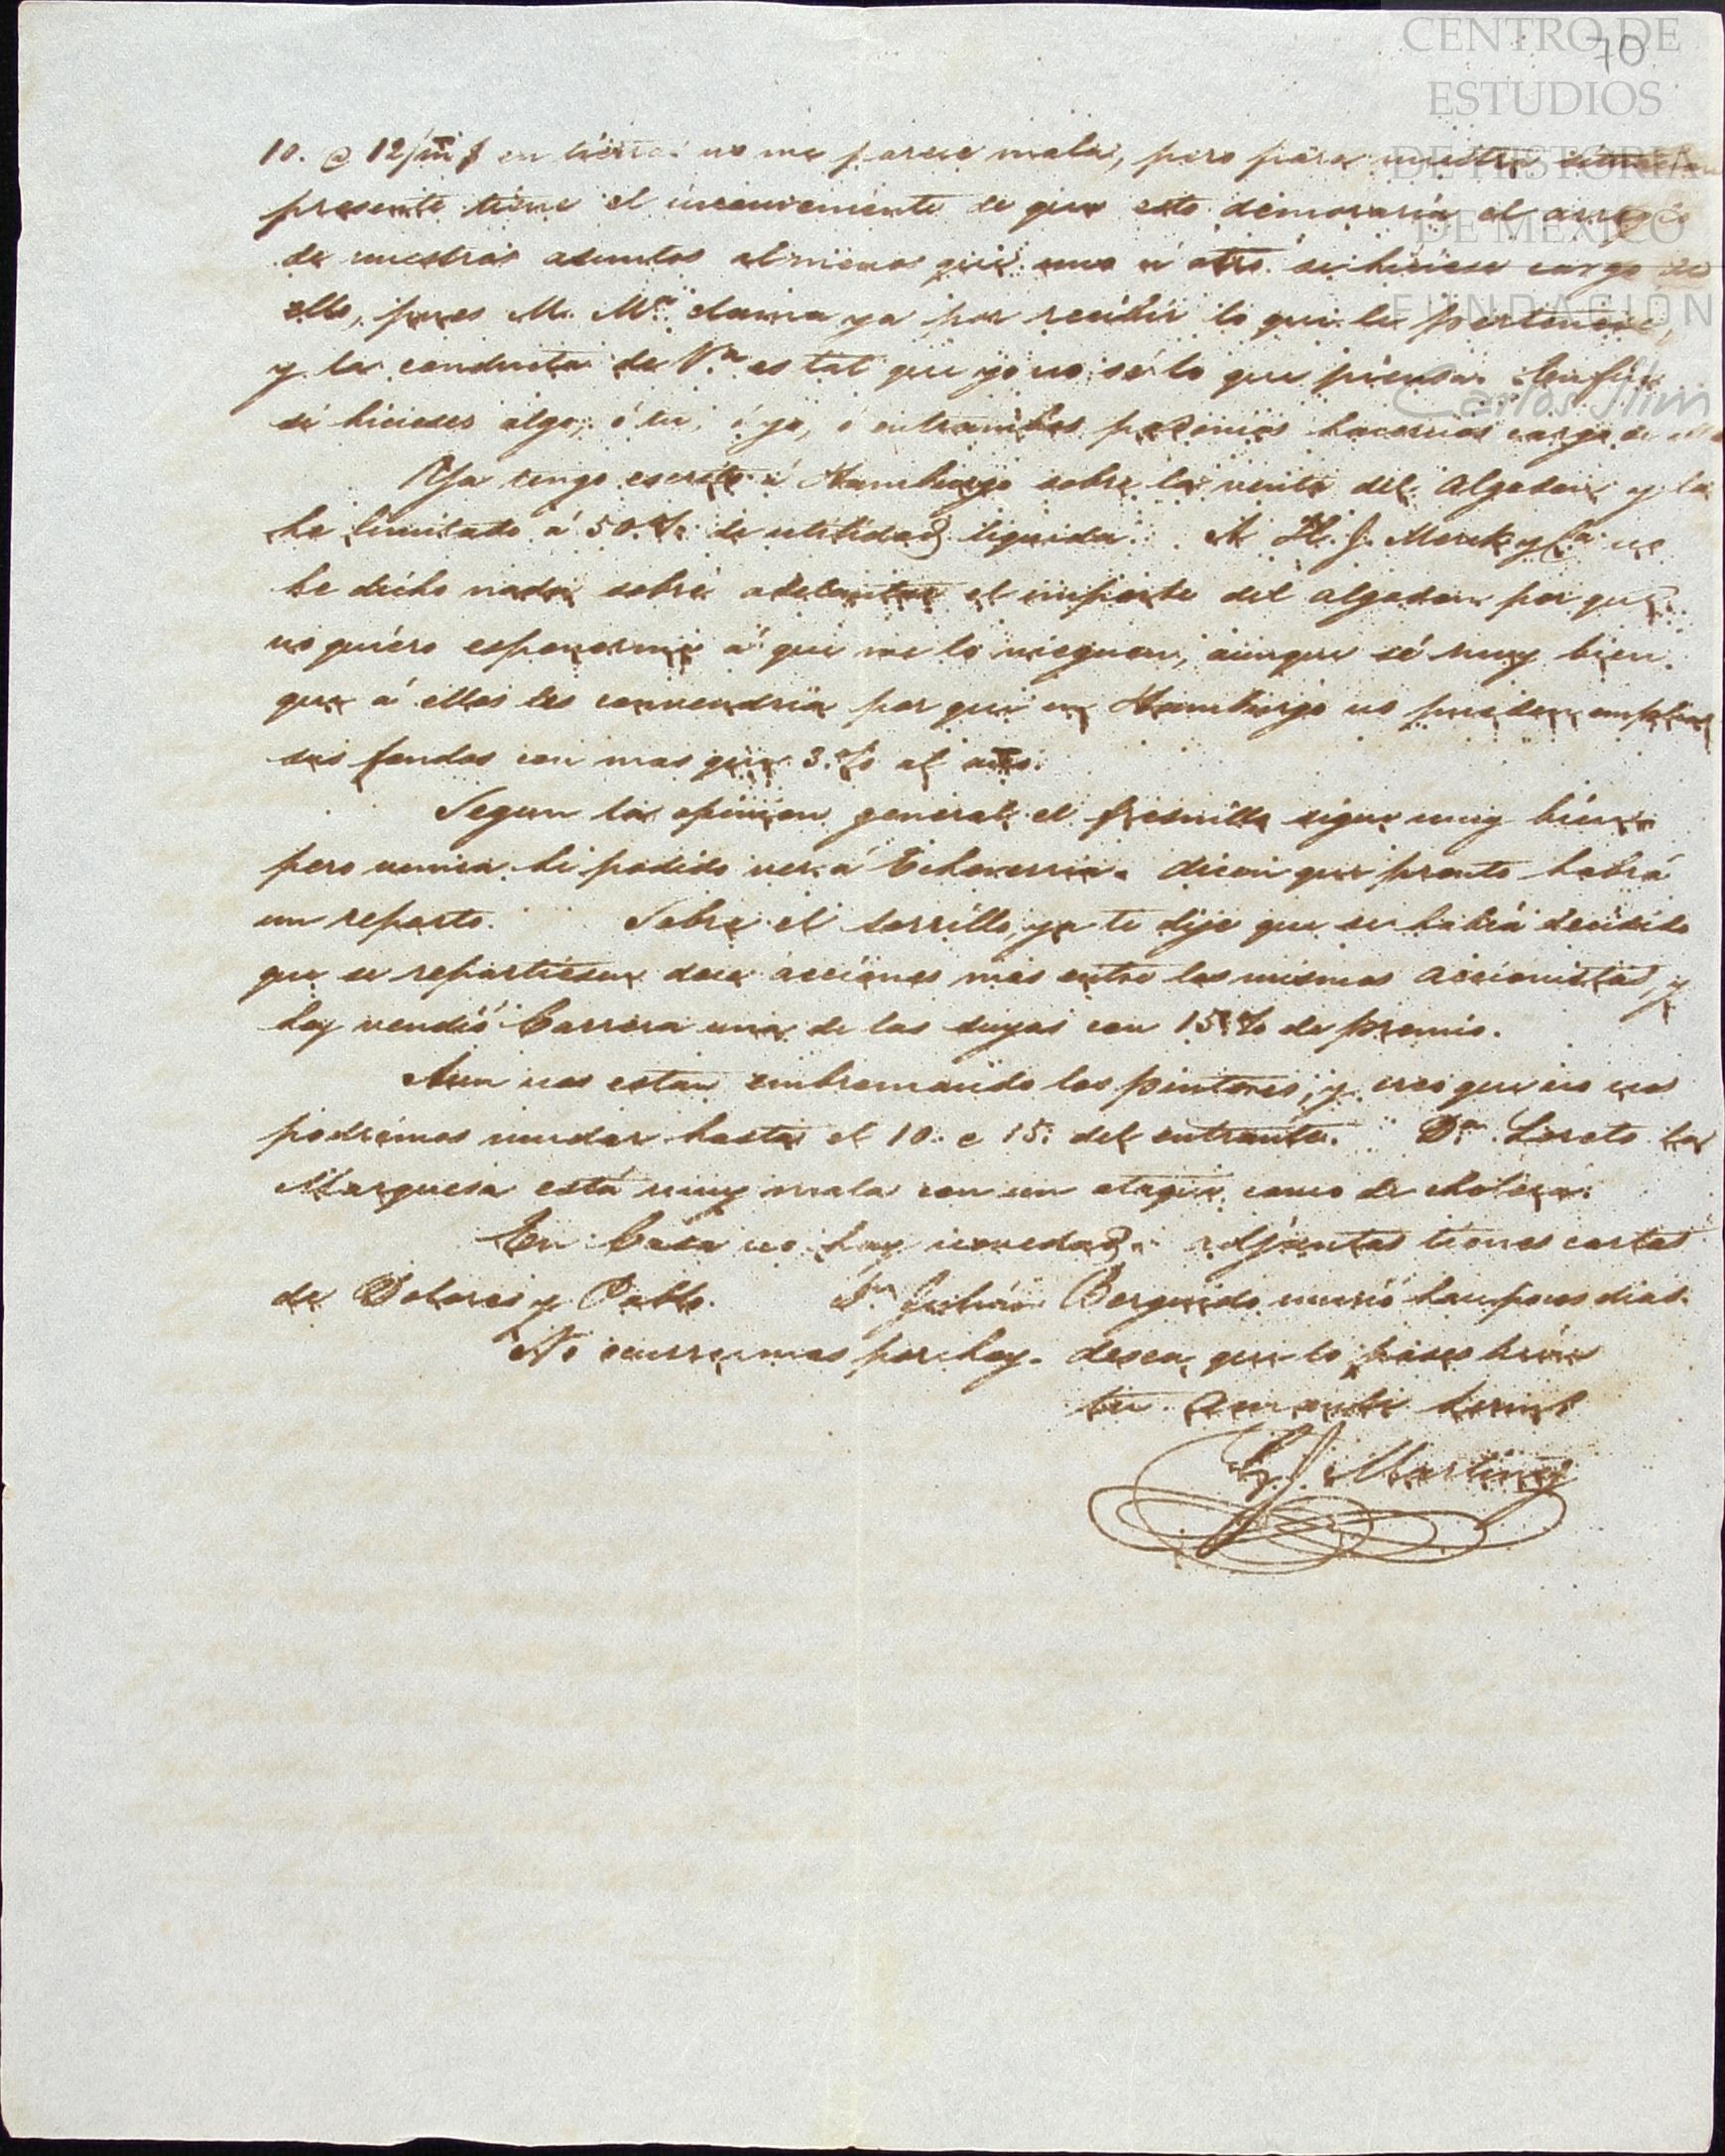 CENTRO DE
ESTUDIOS
DE HISTORIA
DE MÉXICO
FUNDACIÓN
Carlos Slim
70
10. @ 12/m $ en tierra no me parece mala, pero para nuestra situacion
presente tiene el inconveniente de que esto demoraria el arreglo
de nuestros asuntos al menos que uno u otro se hiciese cargo de
ello, pues M. Mª clama ya por recibir lo que le pertenece,
y la conducta de es tal que yo no sé lo que piensa. En fin
si hicieses algo, ó tu, ó yo, ó entrambos podemos hacernos cargo de
Ya tengo escrito á Hamburgo sobre la venta del Algodon y la
he limitado á 50.% de utilidad liquida. A H. J. Merck y Cª no
he dicho nada sobre adelantar el importe del algodon por que
no quiero esponerme á que me lo nieguen, aunque sé muy bien
que á ellos les convendria por que en Hamburgo no pueden emplear
sus fondos con mas que 3.% al año.
Segun la opinion general el fresnillo sigue muy bien
pero nunca he podido ver á Echeverria. dicen que pronto habrá
un reparto. Sobre el ya te dije que se habia decidido
que se repartiesen doce acciones mas entre los mismos accionistas, y
hoy vendió Carrera una de las suyas con 15% de premio.
Aun nos estan embromando los pintores, y creo que no nos
podremos mudar hasta el 10. e 15. del entrante. Dª Loreto la
Marquesa está muy mala con un ataque como de cholera.
En Casa no hay novedad. adjuntas tienes cartas
de Dolores y Pablo. Dn Julian murió hace pocos dias.
No ocurre mas por hoy. desea que lo pases bien
tu amante herm.º
Martinez